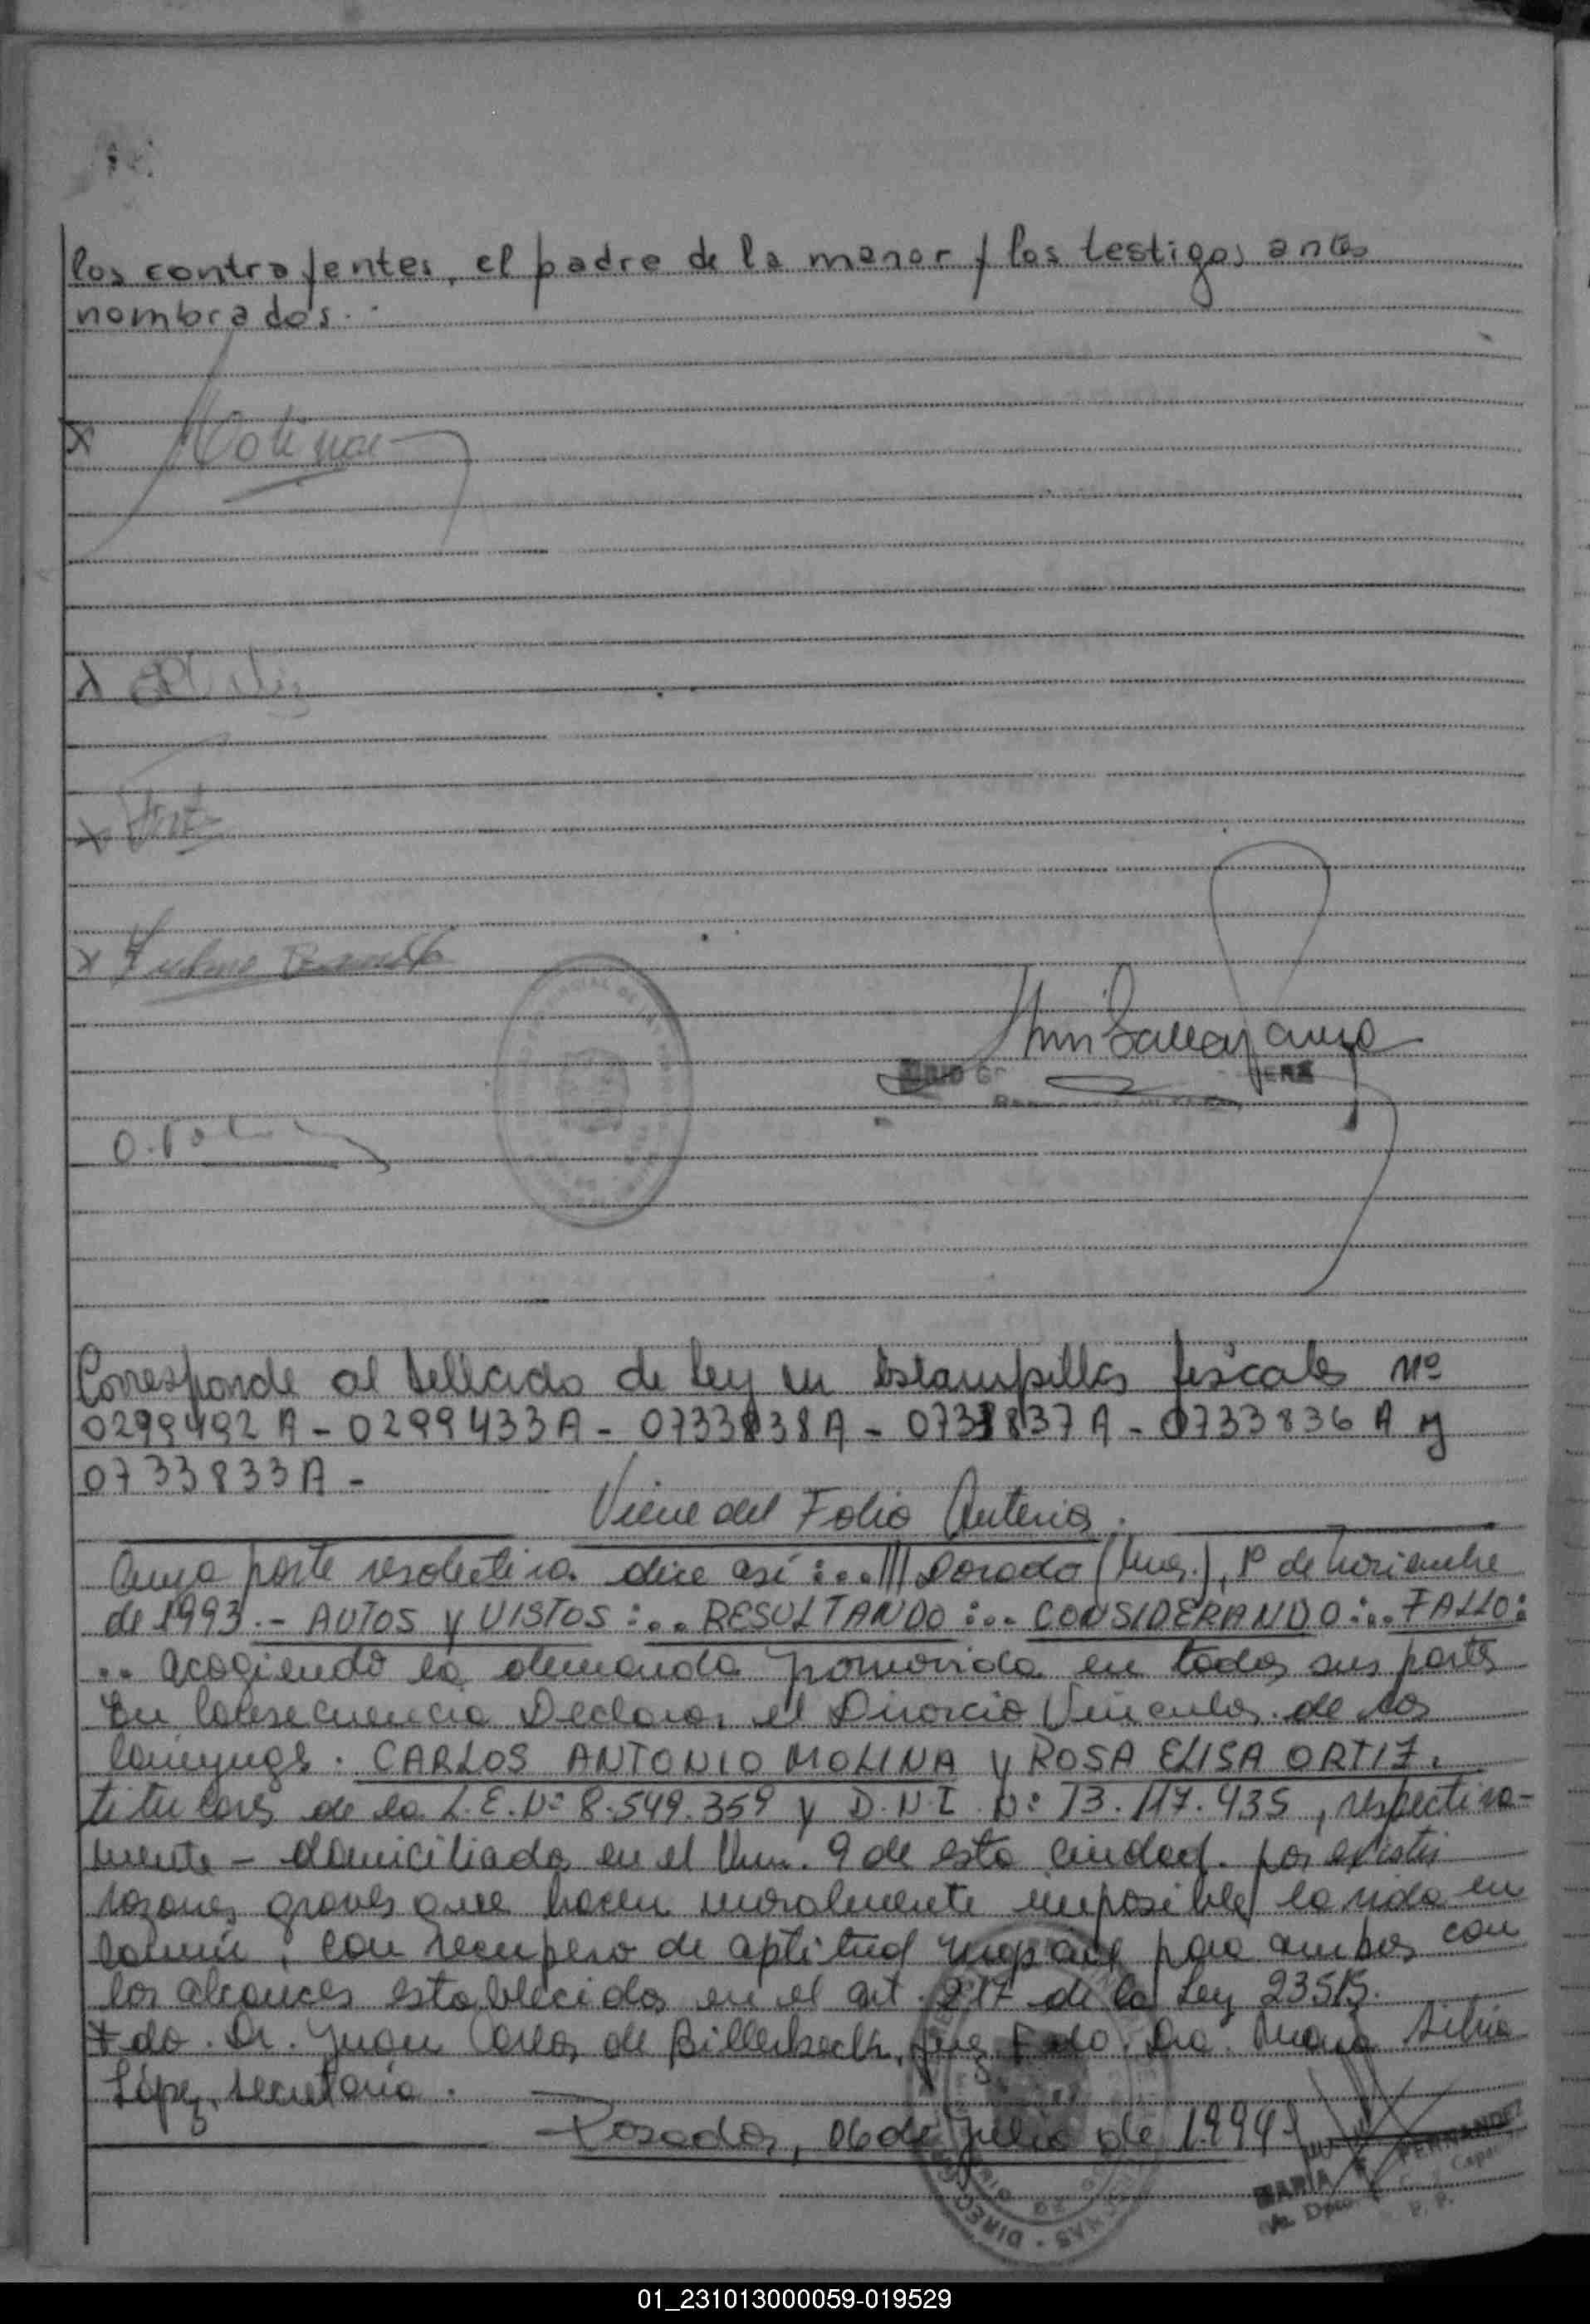 los contrayentes, el padre de la menor y los testigos antes
nombrados.
x Molina
x
x
x
O.
Corresponde al sellado de ley en Estampillas fiscales Nº
0299492 A - 0299433 A - 0733838 A - 0733837 A - 0733836 A y
0733833 A -
Viene del Folio Anterior.
Cuya parte resolutiva dice así:.../// Posadas (Mnes.), 1º de Noviembre
de 1993.- AUTOS y VISTOS:... RESULTANDO:... CONSIDERANDO:... FALLO:
.. Acogiendo la demanda promovida en todas sus partes
En Consecuencia Declarar el Divorcio Vincular de los
cónyuges. CARLOS ANTONIO MOLINA y ROSA ELISA ORTIZ.
titulares de la L.E. Nº 8.549.359 y D.N.I. Nº 13.117.435, respectiva-
mente - domiciliados en el 9 de esta ciudad. por existir
razones graves que hacen moralmente imposible la vida en
común, con recupero de aptitud nupcial para ambos con
los alcances establecidos en el art. 217 de la Ley 23515.
Fdo. Dr. Juan Carlos de Billerbeck, Juez Fdo. Dra. María Silvia
López, secretaria.
Posadas, 06 de Julio de 1.994
MARIA FERNANDEZ
01_231013000059-019529